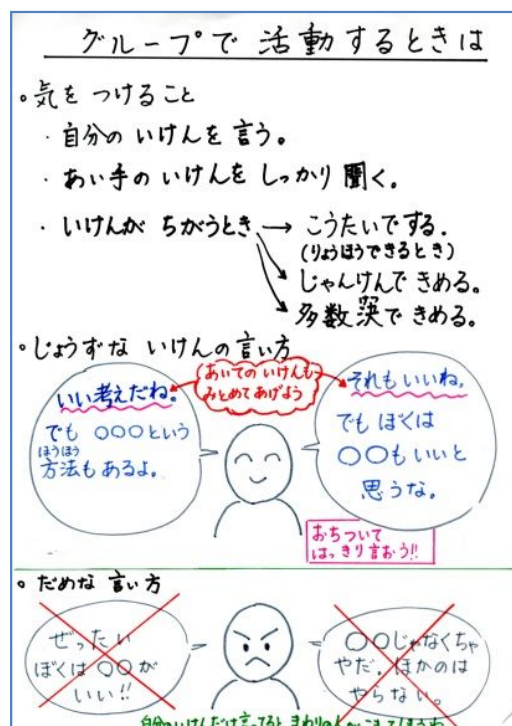 グループで 活動するときは
。気を つけること
・自分の いけんを 言う。
・あい手の いけんを しっかり 聞く。
・いけんが ちがうとき → こうたいでする.
(りょうほうできるとき)
じゃんけんで きめる。
多数決で きめる。
。じょうずな いけんの言い方
あいての いけんも
みとめてあげよう
いい考えだね。
でも ○○○という
ほうほう
方法も あるよ。
それもいいね,
でも ぼくは
○○も いいと
思うな。
おちついて
はっきり言おう!!
。だめな 言い方
ぜったい
ぼくは ○○が
いい!!
○○じゃなくちゃ
やだ。ほかのは
やらない。
自分のいけんだけ言ってると まわりの